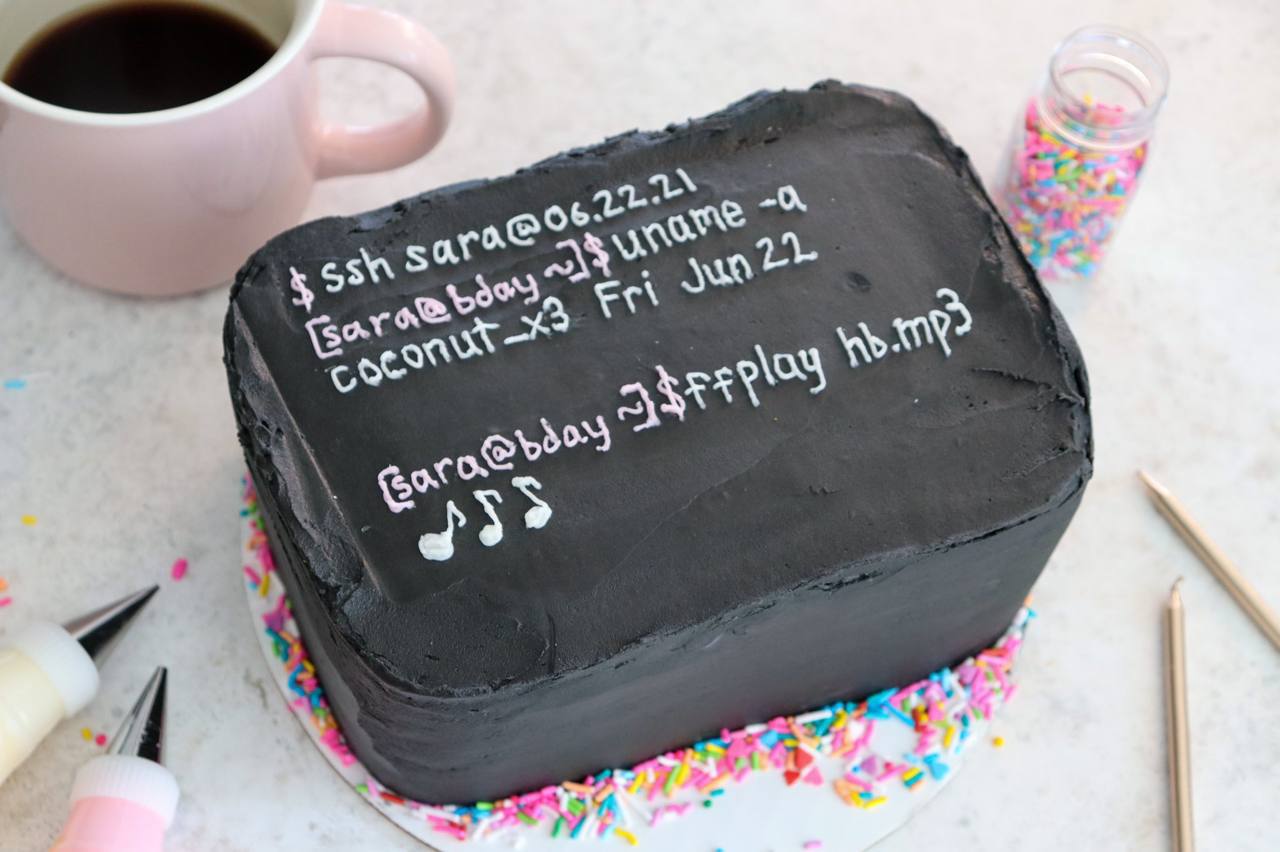 $ ssh sara@06.22.21
[sara@bday ~]$ uname -a
coconut_x3 Fri Jun 22
[sara@bday ~]$ ffplay hb.mp3
♪♪♪